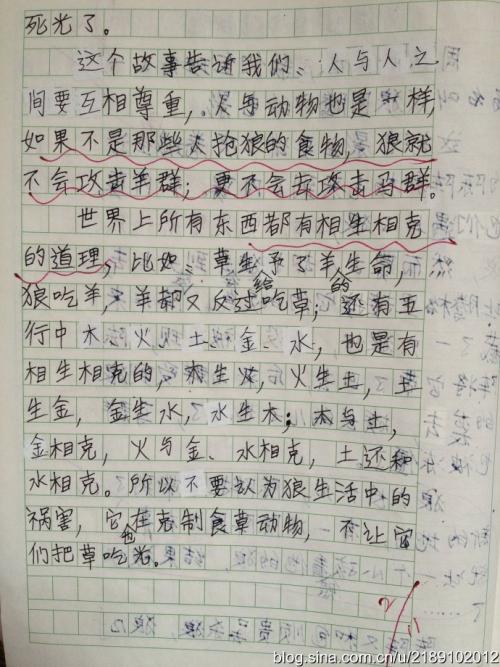 死光了。
这个故事告诉我们、人与人之
间要互相尊重,人与动物也是一样,
如果不是那些人抢狼的食物,狼就
不会攻击羊群;更不会去攻击马群。
世界上所有东西都有相生相克
的道理,比如、草生予了羊生命,
给 的
狼吃羊,羊却又反过吃草;还有五
行中木、火、土、金、水,也是有
相生相克的,木生火,火生土,土
生金,金生水,水生木;木与土,
金相克,火与金、水相克,土还和
水相克。所以不要认为狼生活中的
祸害,它在克制食草动物,不让它
也
们把草吃光。
blog.sina.com.cn/u/2189102012